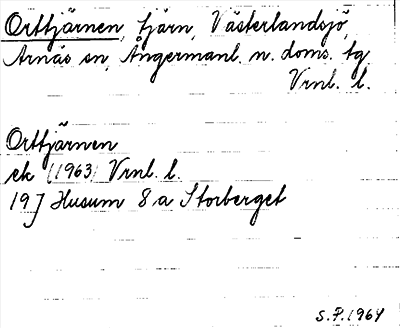 Orttjärnen, tjärn, Västerlandsjö,
Arnäs sn, Ångermanl. n. doms. tg
Vrnl. l.
Orttjärnen
ek (1963) Vrnl. l.
19 J Husum 8 a Storberget
S.P. 1964